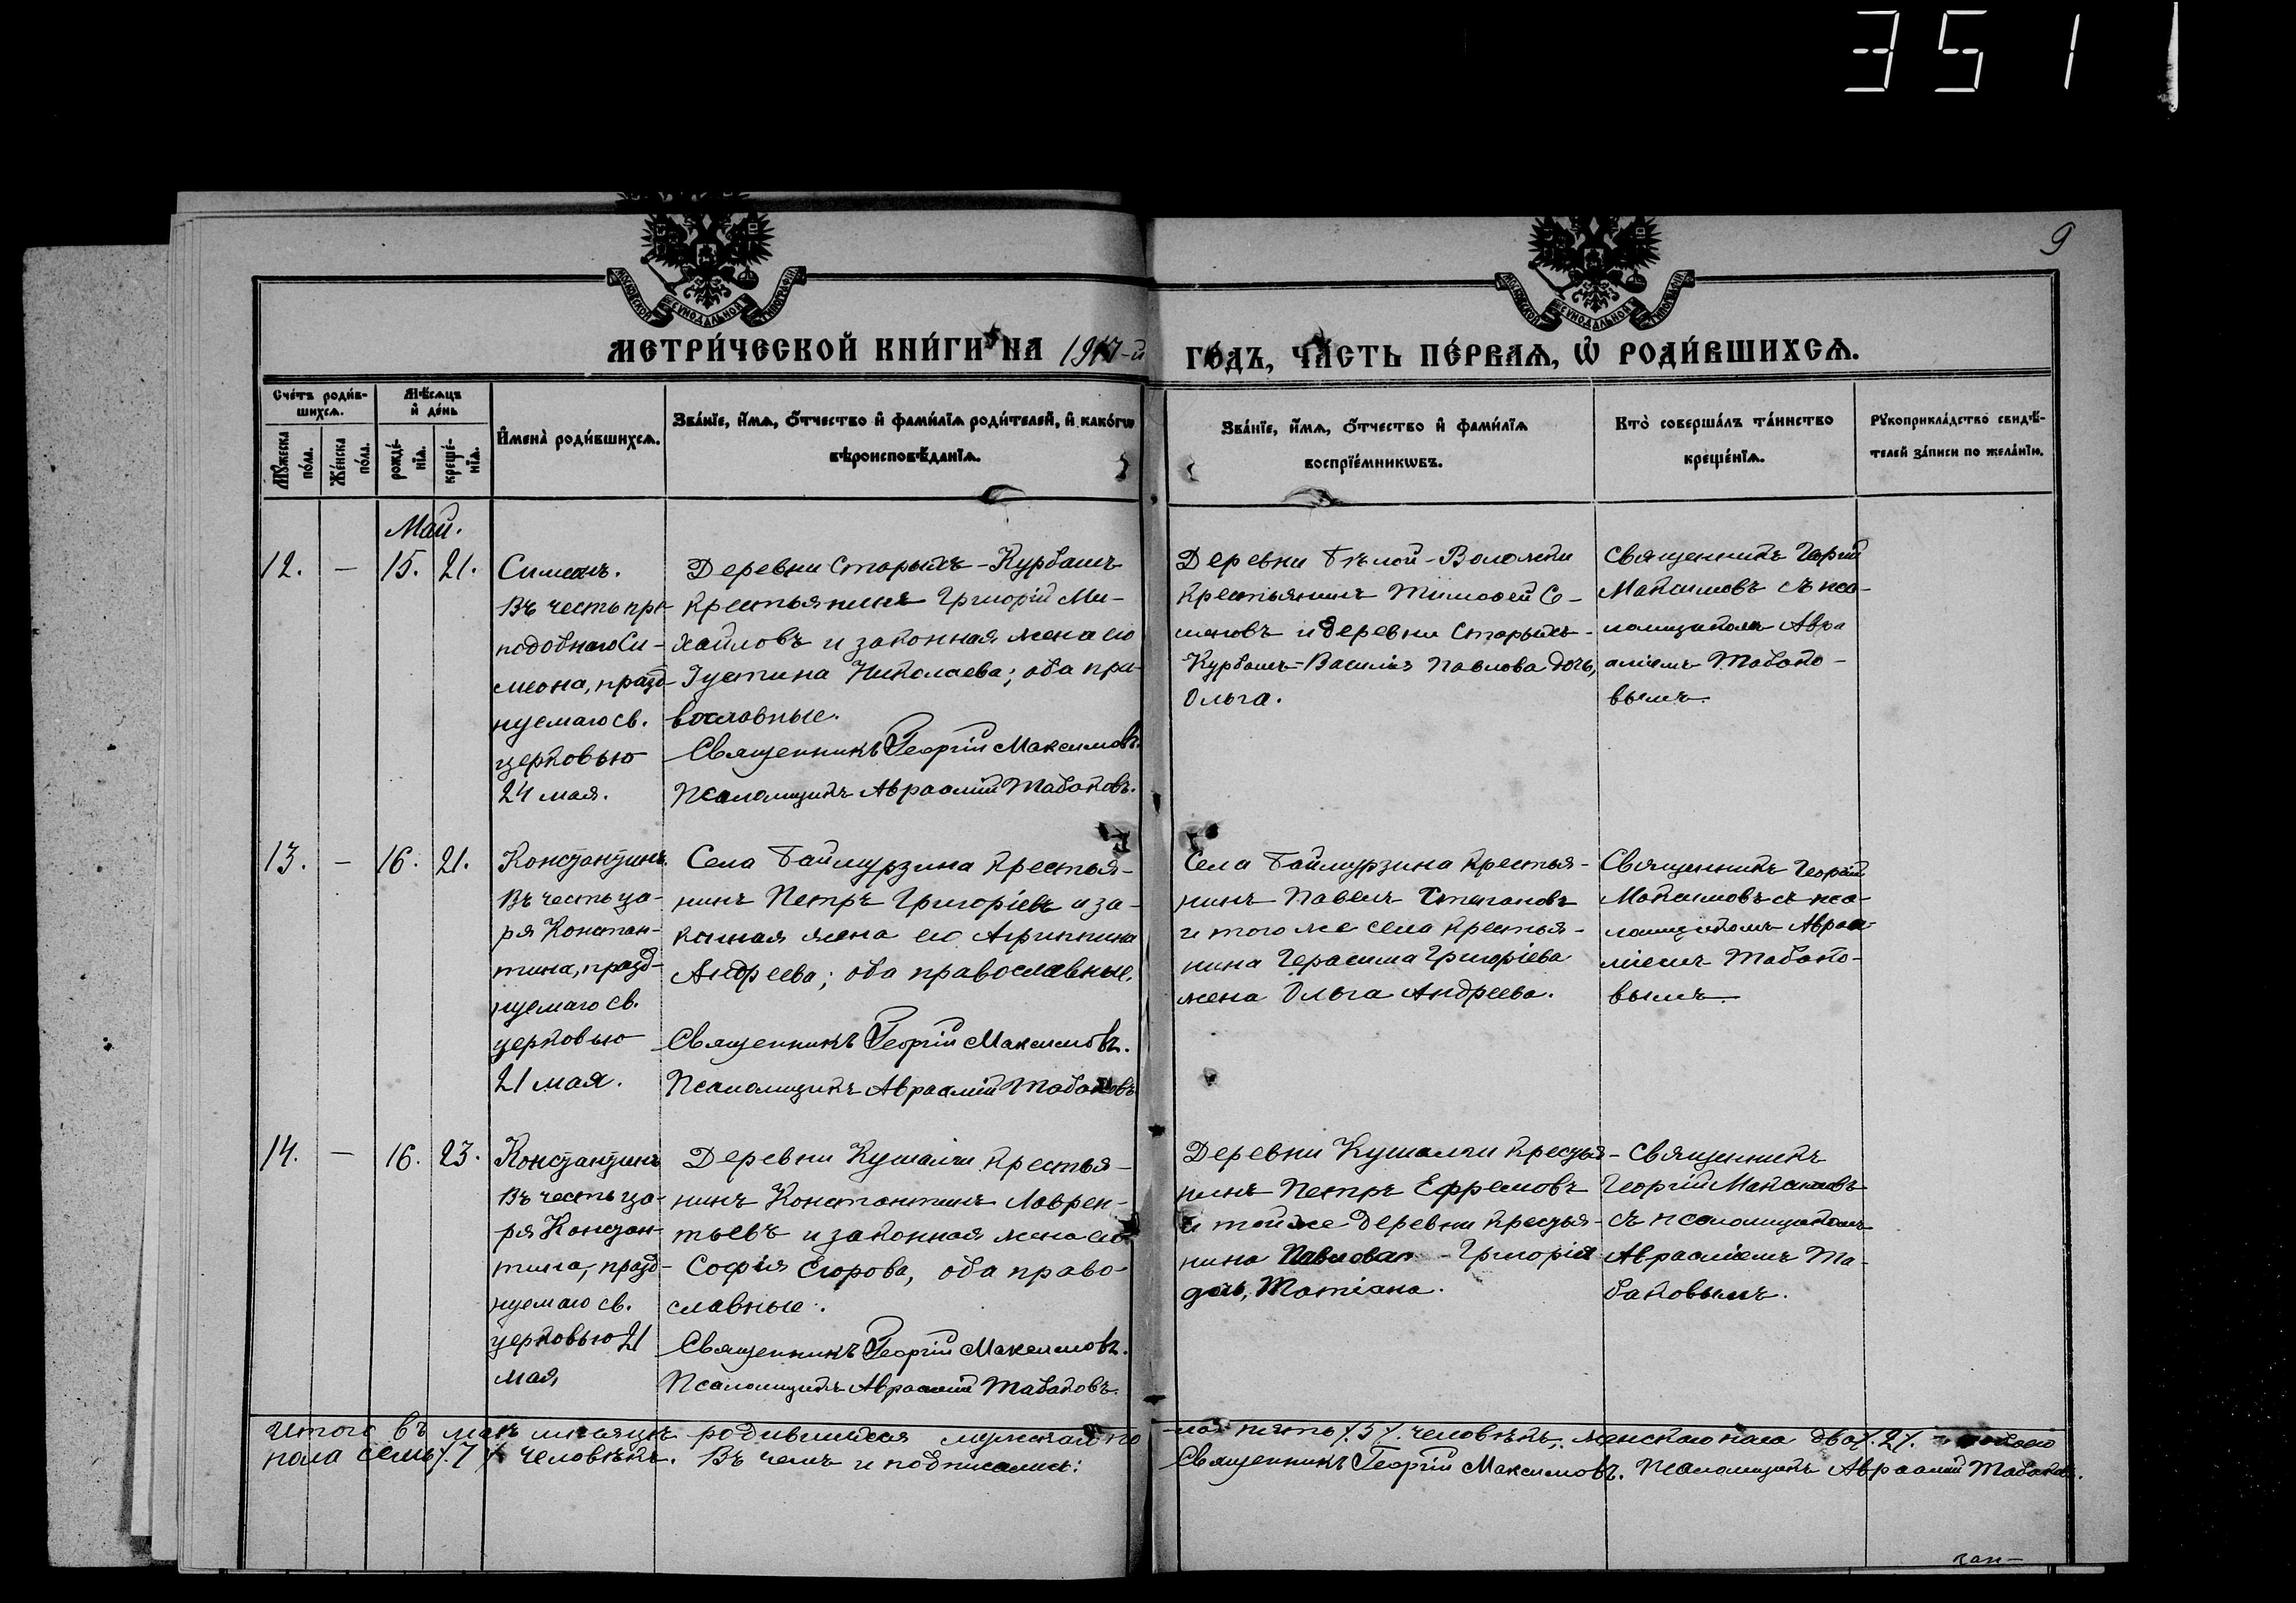 351
9
МОСКОВСКОЙ СѴНОДАЛЬНОЙ ТИПОГРАФІИ
МОСКОВСКОЙ СѴНОДАЛЬНОЙ ТИПОГРАФІИ
МЕТРИ́ЧЕСКОЙ КНИ́ГИ НА 1917-й
ГО́ДЪ, ЧА́СТЬ ПЕ́РВАѦ, Ѡ҆ РОДИ́ВШИХСѦ.
Сче́тъ роди́в-
шихсѧ.
Мꙋ́жеска
по́ла.
Же́нска
по́ла.
Мѣ́сѧцъ
и҆ де́нь
рожде́-
нїѧ.
креще́-
нїѧ.
И҆мена̀ роди́вшихсѧ.
Зва́нїе, и҆́мѧ, ѻ҆́тчество и҆ фами́лїѧ роди́телей, и҆ како́гѡ
вѣроисповѣ́данїѧ.
Зва́нїе, и҆́мѧ, ѻ҆́тчество и҆ фами́лїѧ
воспрїе́мникѡвъ.
Кто̀ соверша́лъ та́инство
креще́нїѧ.
Рꙋкоприкла́дство свидѣ́-
телей за́писи по жела́нїю.
Май.
12. – 15. 21.
Симеонъ.
Въ честь пре-
подобнаго Си-
меона, празд-
нуемаго св.
церковью
24 мая.
Деревни Старыхъ-Курбашъ
крестьянинъ Григорій Ми-
хайловъ и законная жена его
Іустина Николаева; оба пра-
вославные.
Священникъ Георгій Максимовъ.
Псаломщикъ Авраамій Табаковъ.
Деревни Бѣлой-Воложки
крестьянинъ Тимоѳей Се-
меновъ и деревни Старыхъ-
Курбашъ-Василія Павлова дочь,
Ольга.
Священникъ Георгій
Максимовъ съ пса-
ломщикомъ Авра
аміемъ Табако-
вымъ.
13. – 16. 21.
Константинъ.
Въ честь ца-
ря Констан-
тина, празд-
нуемаго св.
церковью
21 мая.
Села Баймурзина крестья-
нинъ Петръ Григоріевъ и за-
конная жена его Агриппина
Андреева; оба православные.
Священникъ Георгій Максимовъ.
Псаломщикъ Авраамій Табаковъ
Села Баймурзина крестья-
нинъ Павелъ Степановъ
и того же села крестья-
нина Герасима Григоріева
жена Ольга Андреева.
Священникъ Георгій
Максимовъ съ пса-
ломщикомъ Авраа-
міемъ Табако-
вымъ.
14. – 16. 23.
Константинъ
Въ честь ца-
ря Констан-
тина, празд-
нуемаго св.
церковью 21
мая,
Деревни Кушалги крестья-
нинъ Константинъ Лаврен-
тьевъ и законная жена его
Софія Егорова, оба право-
славные.
Священникъ Георгій Максимовъ.
Псаломщикъ Авраамій Табаковъ.
Деревни Кушалги крестья-
нинъ Петръ Ефремовъ
и той же деревни крестья-
нина - Григорія
дочь, Татіана.
Священникъ
Георгій Максимовъ
съ псаломщикомъ
Аврааміемъ Та-
баковымъ.
Итого въ маѣ мѣсяцѣ родившихся мужскаго по
-ла пять /.5/. человѣкъ, женскаго пола два /.2/. - обоего
пола семь /.7/. человѣкъ. Въ чемъ и подписались:
Священникъ Георгій Максимовъ. Псаломщикъ Авраамій Табаковъ.